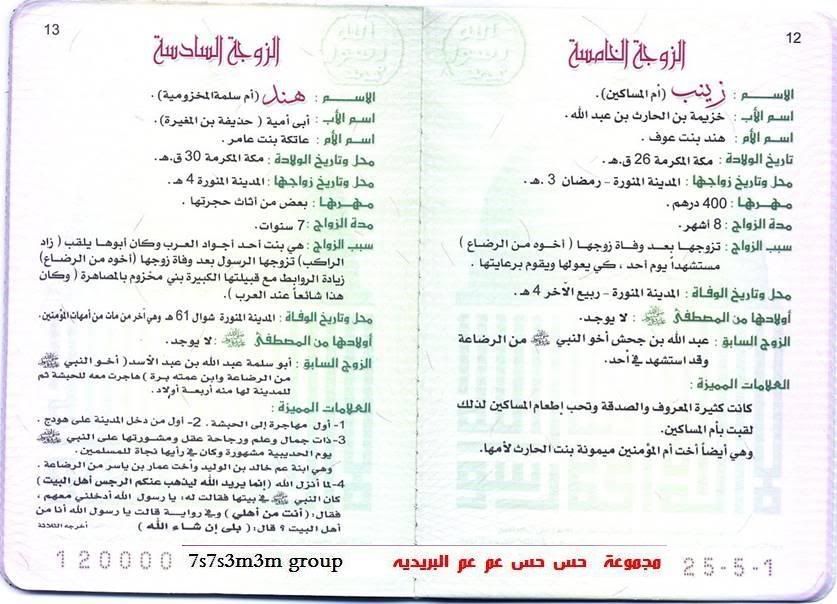 12
الزوجة الخامسة
الاسم : زينب (أم المساكين).
اسم الأب : خزيمة بن الحارث بن عبد الله.
اسم الأم : هند بنت عوف.
تاريخ الولادة : مكة المكرمة 26 ق.هـ.
محل وتاريخ زواجها : المدينة المنورة - رمضان 3 .هـ.
مهرها : 400 درهم.
مدة الزواج : 8 أشهر.
سبب الزواج : تزوجها بعد وفاة زوجها ( أخوه من الرضاع )
مستشهداً يوم أحد ، كي يعولها ويقوم برعايتها .
محل وتاريخ الوفاة : المدينة المنورة - ربيع الآخر 4 هـ.
أولادها من المصطفى ﷺ : لا يوجد.
الزوج السابق : عبد الله بن جحش أخو النبي ﷺ من الرضاعة
وقد استشهد في أحد.
العلامات المميزة :
كانت كثيرة المعروف والصدقة وتحب إطعام المساكين لذلك
لقبت بأم المساكين.
وهي أيضاً أخت أم المؤمنين ميمونة بنت الحارث لأمها.
25-5-1
13
الزوجة السادسة
الاسم : هند (أم سلمة المخزومية) .
اسم الأب : أبى أمية ( حذيفة بن المغيرة).
اسم الأم : عاتكة بنت عامر.
محل وتاريخ الولادة : مكة المكرمة 30 ق.هـ.
محل وتاريخ زواجها : المدينة المنورة 4 هـ.
مهرها : بعض من أثاث حجرتها .
مدة الزواج : 7 سنوات.
سبب الزواج : هي بنت أحد أجواد العرب وكان أبوها يلقب ( زاد
الراكب) تزوجها الرسول بعد وفاة زوجها (أخوه من الرضاع)
زيادة الروابط مع قبيلتها الكبيرة بني مخزوم بالمصاهرة ( وكان
هذا شائعاً عند العرب ).
محل وتاريخ الوفاة : المدينة المنورة شوال 61 هـ وهي آخر من مات من أمهات المؤمنين.
أولادها من المصطفى ﷺ : لا يوجد.
الزوج السابق : أبو سلمة عبد الله بن عبد الأسد ( أخو النبي ﷺ
من الرضاعة وابن عمته برة ) هاجرت معه للحبشة ثم
للمدينة لها منه أربعة أولاد.
العلامات المميزة :
1- أول مهاجرة إلى الحبشة . 2- أول من دخل المدينة على هودج .
3- ذات جمال وعلم ورجاحة عقل ومشورتها على النبي ﷺ
يوم الحديبية مشهورة وكان في رأيها نجاة للمسلمين.
وهي ابنة عم خالد بن الوليد وأخت عمار بن ياسر من الرضاعة .
4- لما أنزل الله (إنما يريد الله ليذهب عنكم الرجس أهل البيت )
كان النبي ﷺ في بيتها فقالت له: يا رسول الله أدخلني معهم ،
فقال: (أنت من أهلي ) وفي رواية قالت يا رسول الله أنا من
أهل البيت ؟ قال: ( بلى إن شاء الله )
أخرجه الثلاثة
120000
7s7s3m3m group
مجموعة حس حس عم عم البريديه